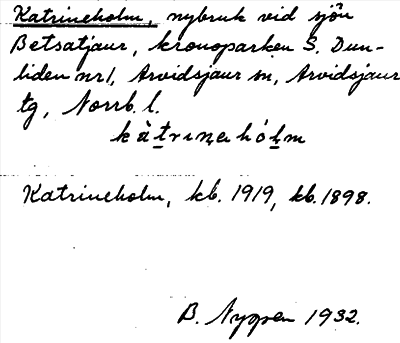 Katrineholm, nybruk vid sjön
Betsatjaur, kronoparken S. Dun-
liden nr 1, Arvidsjaur sn, Arvidsjaur
tg, Norrb. l.
kàtrınehólm
Katrineholm, kb. 1919, kb. 1898.
B. Nygren 1932.